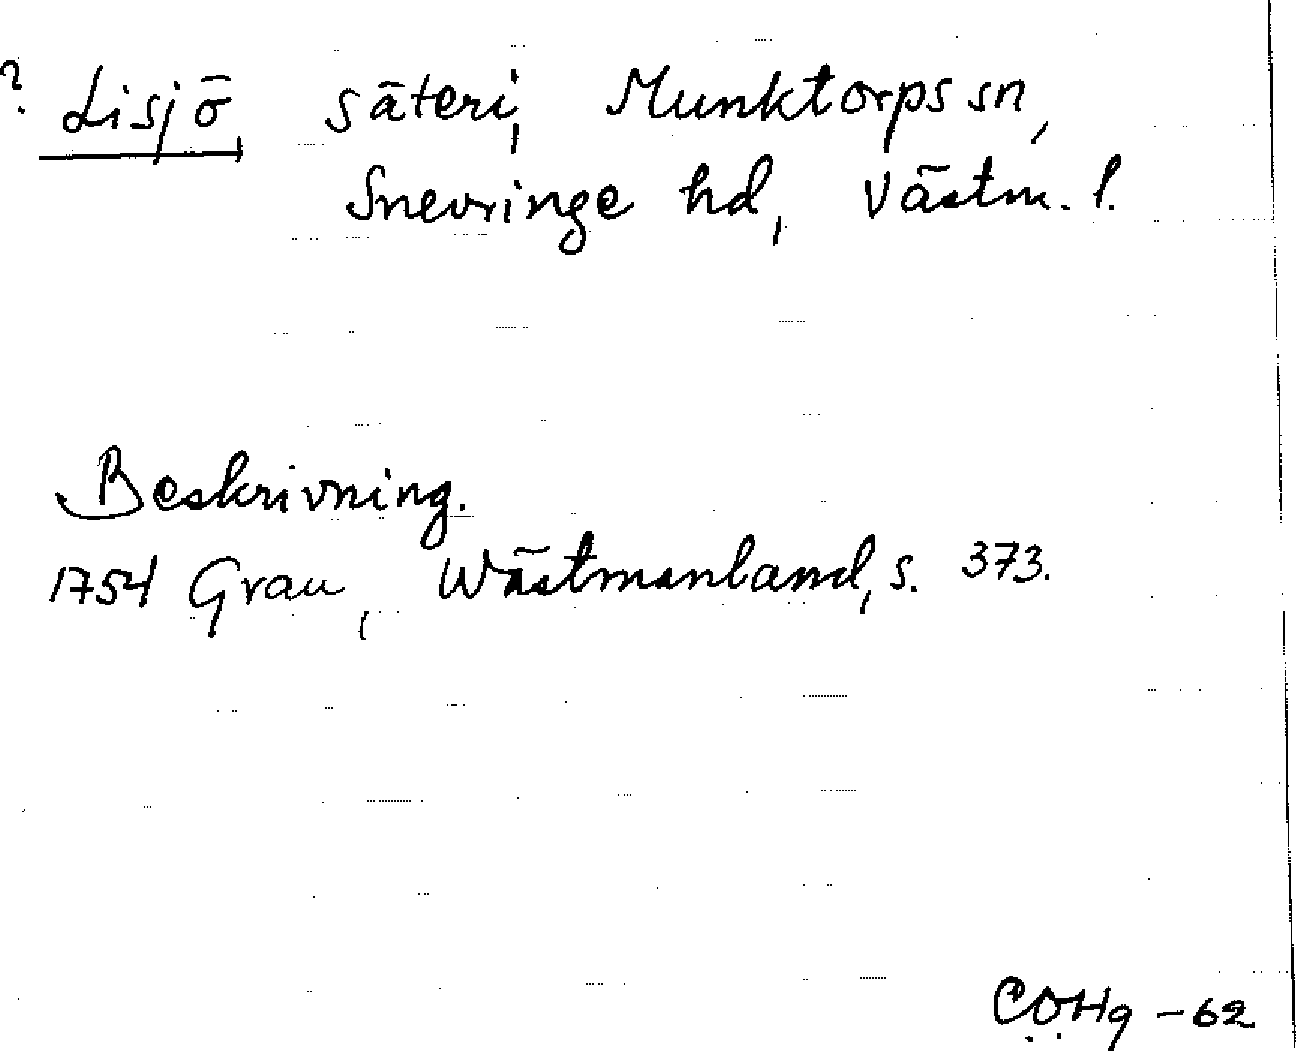 ? Lisjö, säteri, Munktorps sn,
Snevringe hd, Västm. l.
Beskrivning.
1754 Grau, Wästmanland, s. 373.
COHg -62